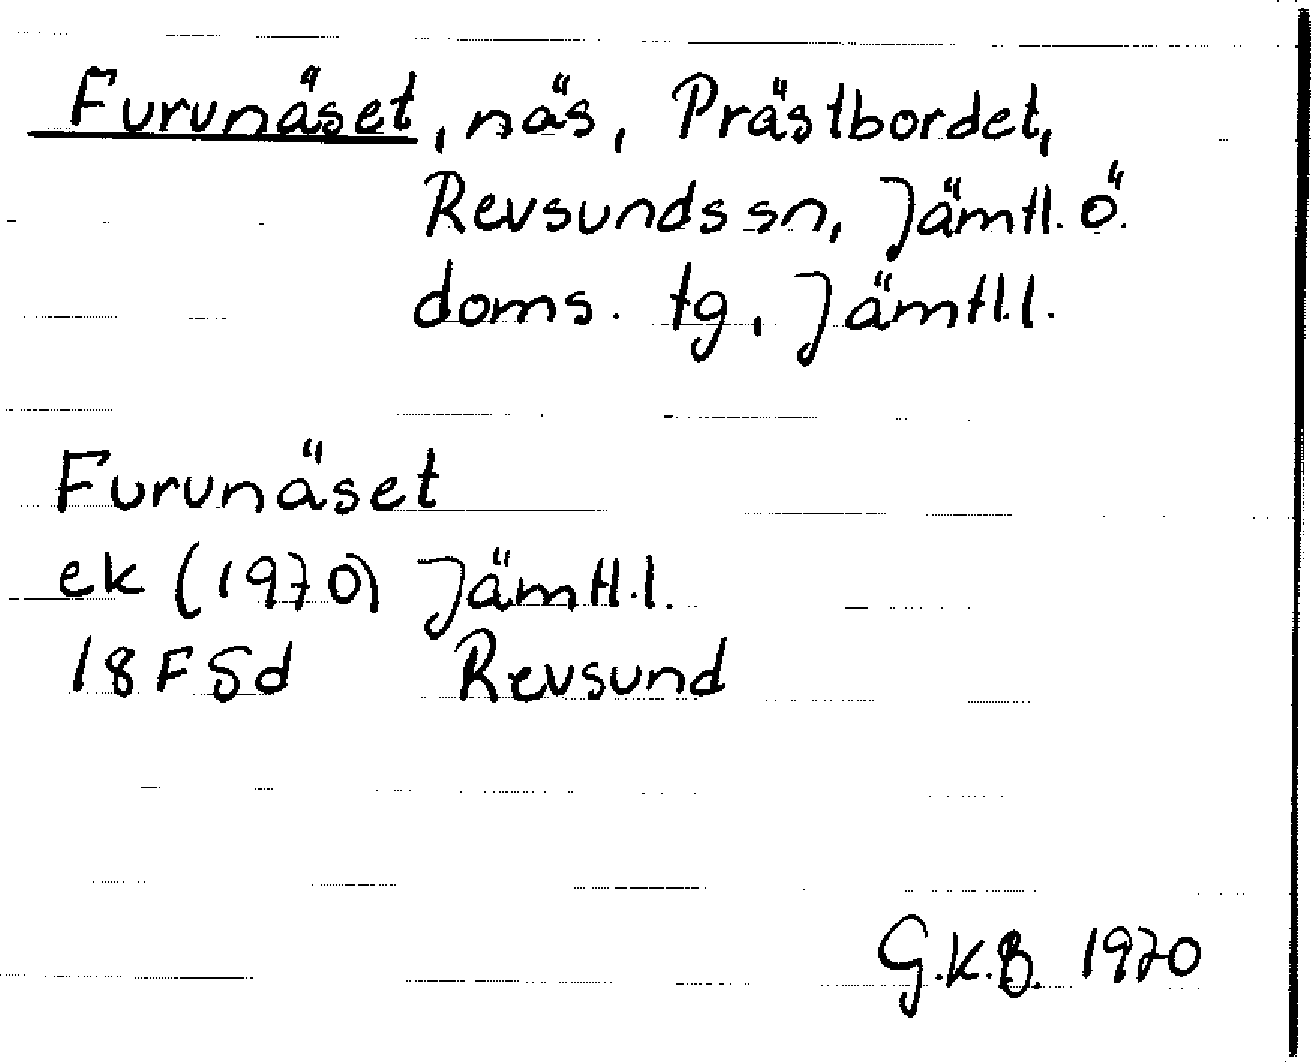 Furunäset, näs, Prästbordet,
Revsunds sn, Jämtl. ö.
doms. tg, Jämtl.l.
Furunäset
ek (1970) Jämtl.l.
18F5d Revsund
G.K.B. 1970